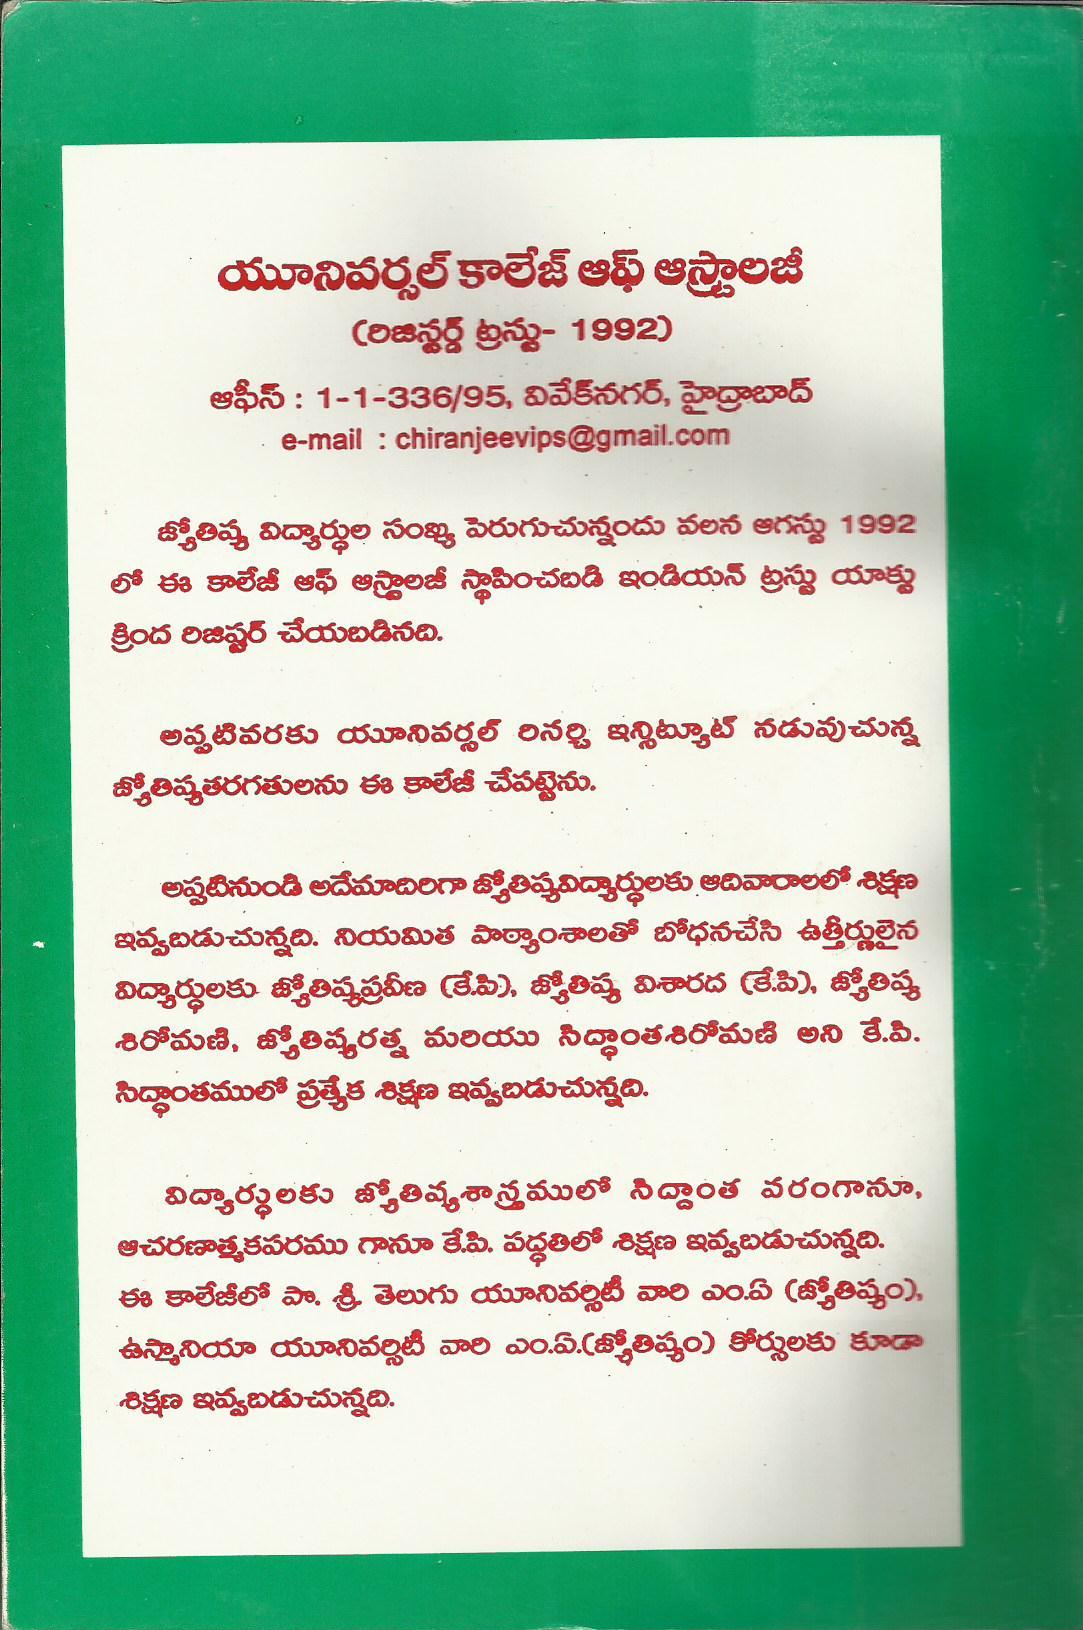 యూనివర్సల్ కాలేజ్ ఆఫ్ ఆస్ట్రాలజీ
(రిజిస్టర్డ్ ట్రస్టు- 1992)
ఆఫీస్ : 1-1-336/95, వివేక్‌నగర్, హైద్రాబాద్
e-mail : chiranjeevips@gmail.com
జ్యోతిష్య విద్యార్థుల సంఖ్య పెరుగుచున్నందు వలన ఆగస్టు 1992
లో ఈ కాలేజీ ఆఫ్ ఆస్ట్రాలజీ స్థాపించబడి ఇండియన్ ట్రస్టు యాక్టు
క్రింద రిజిష్టర్ చేయబడినది.
అప్పటివరకు యూనివర్సల్ రిసర్చి ఇన్సిట్యూట్ నడువుచున్న
జ్యోతిష్యతరగతులను ఈ కాలేజీ చేపట్టెను.
అప్పటినుండి అదేమాదిరిగా జ్యోతిష్యవిద్యార్థులకు ఆదివారాలలో శిక్షణ
ఇవ్వబడుచున్నది. నియమిత పాఠ్యాంశాలతో బోధనచేసి ఉత్తీర్ణులైన
విద్యార్థులకు జ్యోతిష్యప్రవీణ (కే.పి), జ్యోతిష్య విశారద (కే.పి), జ్యోతిష్య
శిరోమణి, జ్యోతిష్యరత్న మరియు సిద్ధాంతశిరోమణి అని కే.పి.
సిద్ధాంతములో ప్రత్యేక శిక్షణ ఇవ్వబడుచున్నది.
విద్యార్థులకు జ్యోతిష్యశాస్త్రములో సిద్దాంత వరంగానూ,
ఆచరణాత్మకపరము గానూ కే.పి. పద్ధతిలో శిక్షణ ఇవ్వబడుచున్నది.
ఈ కాలేజీలో పొ. శ్రీ. తెలుగు యూనివర్సిటీ వారి ఎం.ఏ (జ్యోతిష్యం),
ఉస్మానియా యూనివర్సిటీ వారి ఎం.ఏ.(జ్యోతిష్యం) కోర్సులకు కూడా
శిక్షణ ఇవ్వబడుచున్నది.